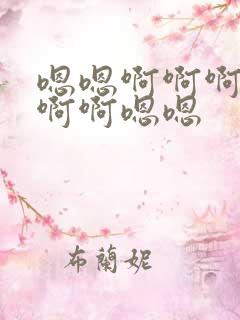 嗯嗯啊啊啊
啊啊嗯嗯
布蘭妮